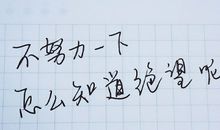 不努力一下
怎么知道绝望呢